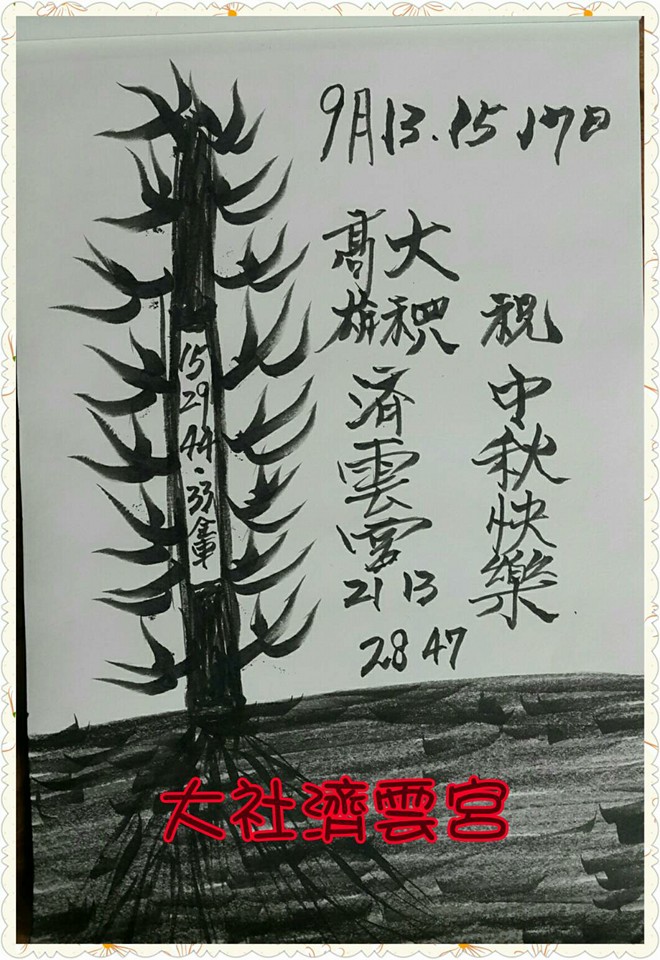 9月13.15 17日
高雄
大
済雲宮
21 13
28 47
祝中秋快樂
15
29
44.33
大社濟雲宮